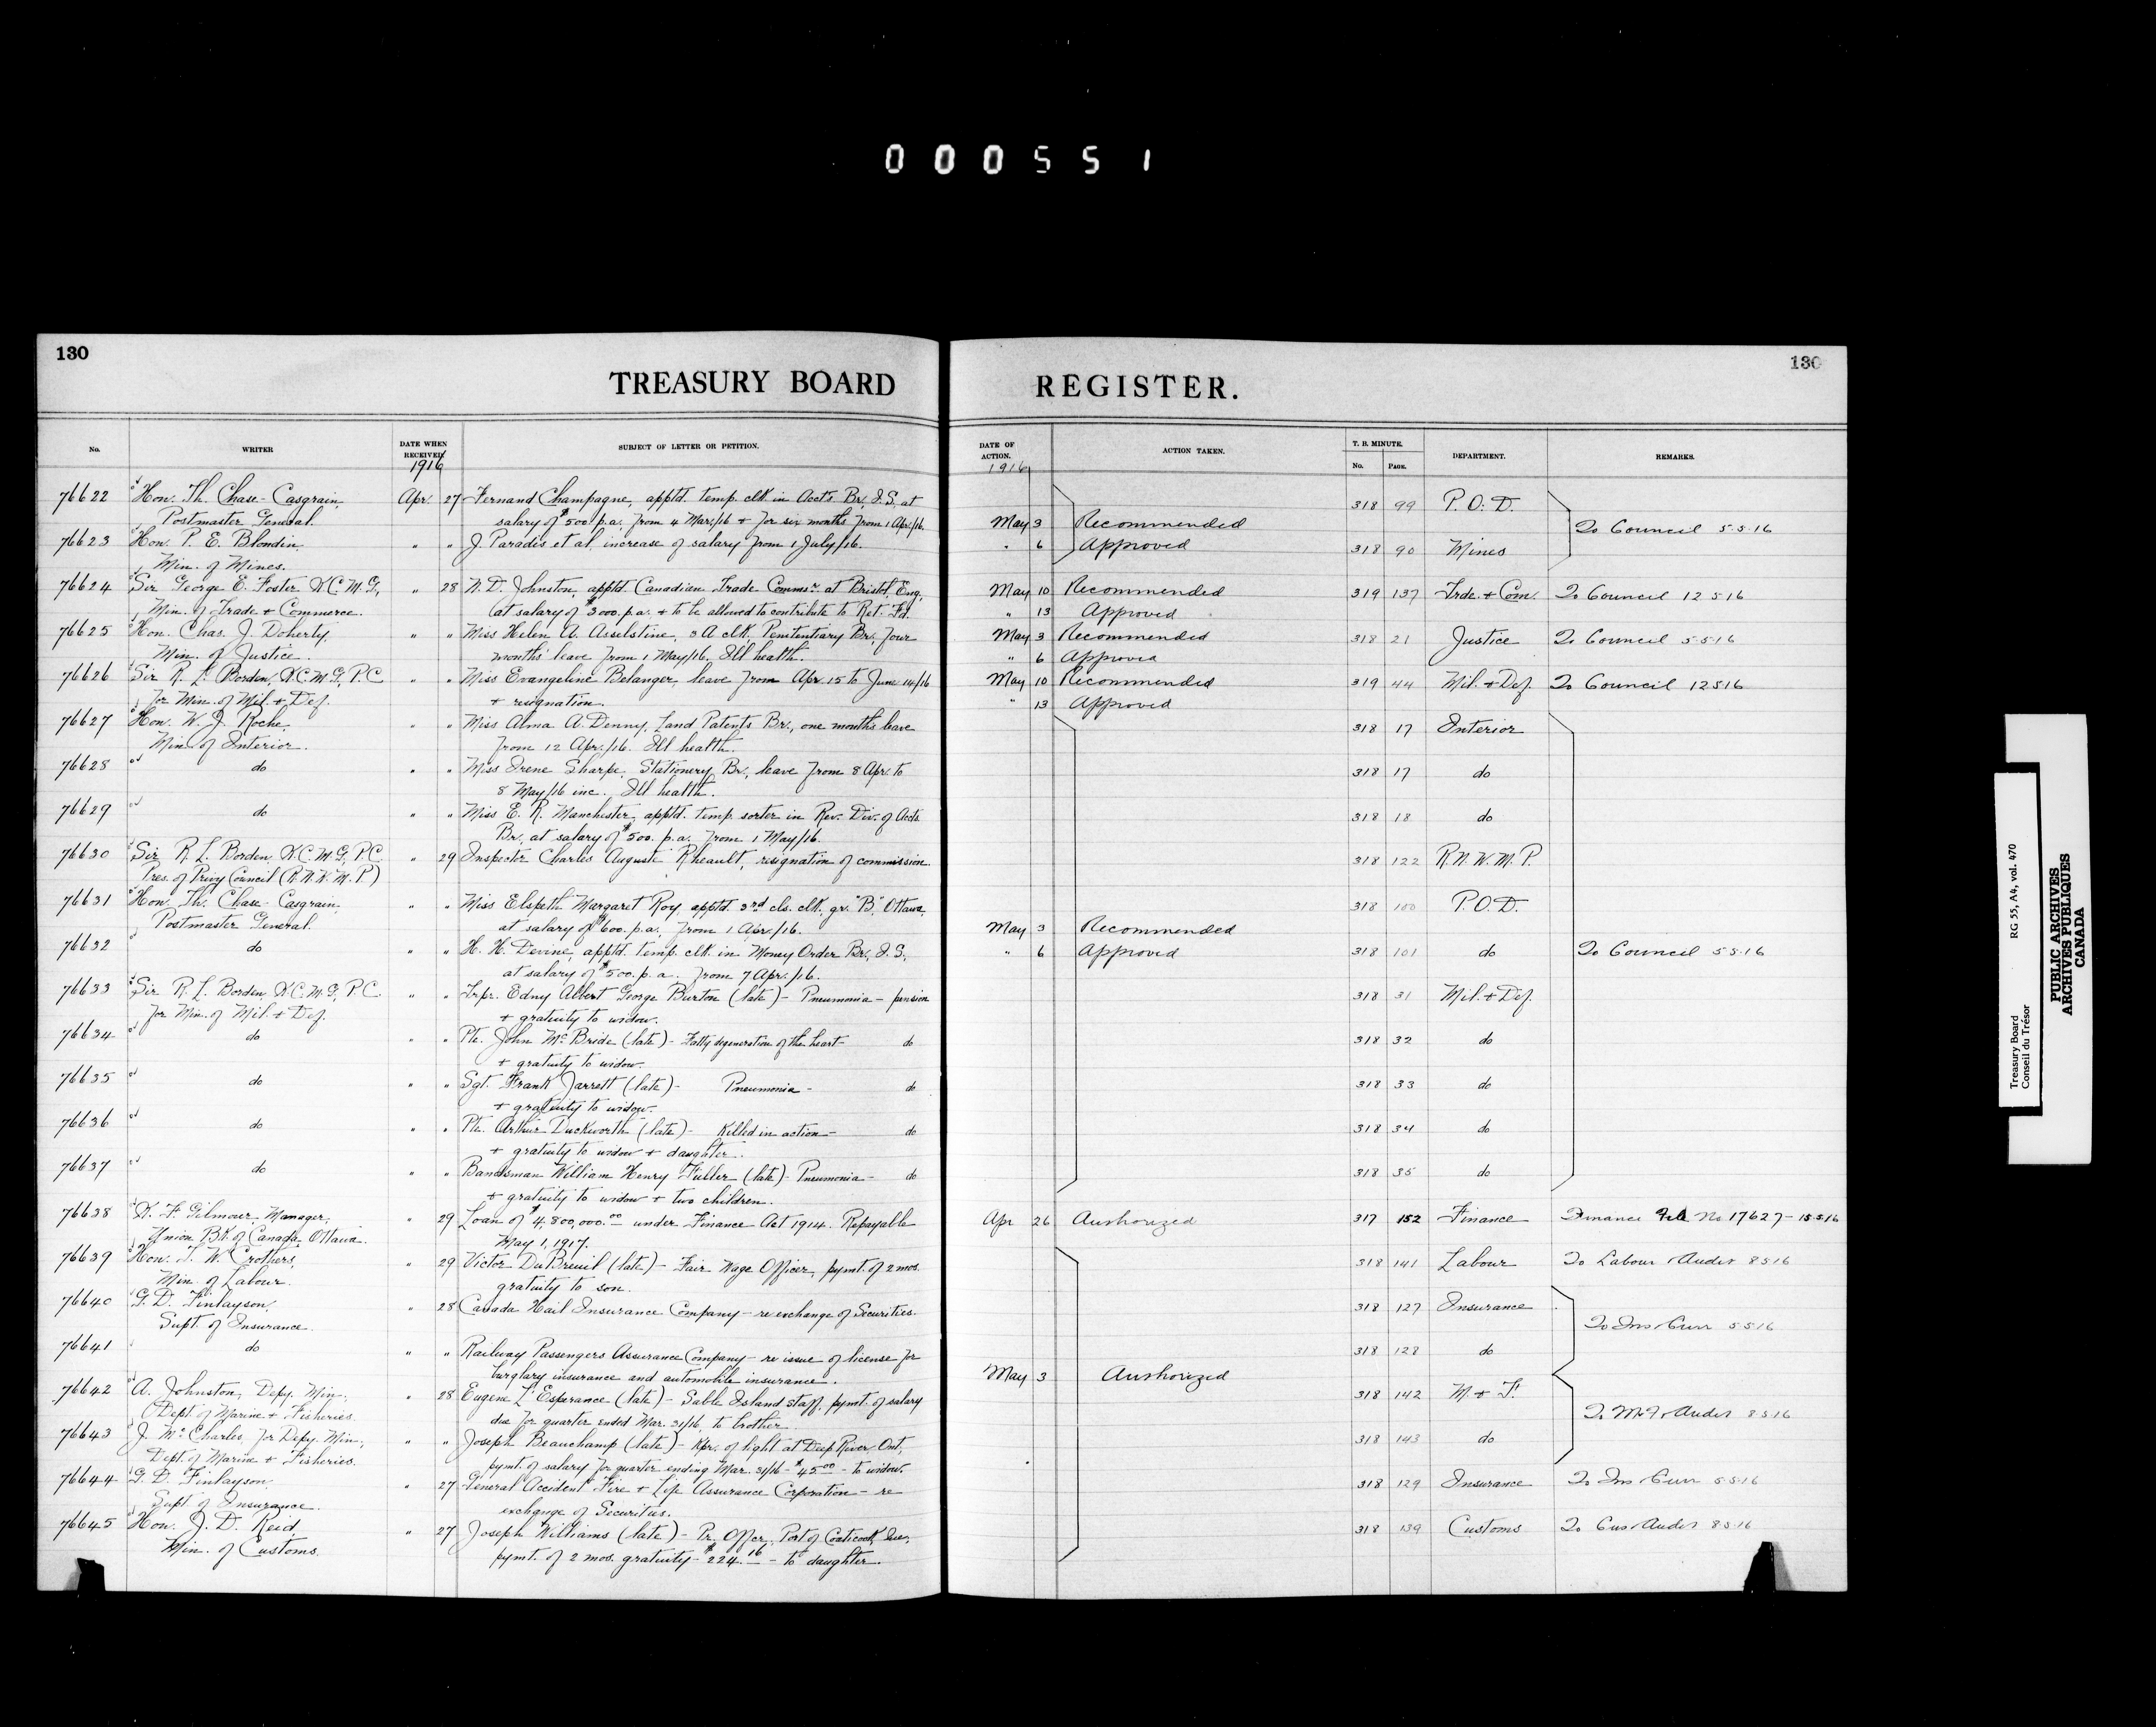 000551
130
TREASURY BOARD
No. WRITER DATE WHEN RECEIVED SUBJECT OF LETTER OR PETITION.
1916
76622 Hon. Th. Chase-Casgrain, Apr. 27 Fernand Champagne, apptd. temp. clk. in Acct's Br., I.S., at
Postmaster General. salary of $500 p.a. from 4 Mar./16 + for six months from 1 Apr./16.
76623 Hon. P. E. Blondin, " " J. Paradis et al, increase of salary from 1 July/16.
Min. of Mines.
76624 Sir George E. Foster K.C.M.G., " 28 N. D. Johnston, apptd. Canadian Trade Commsr. at Bristol, Eng.,
Min. of Trade + Commerce. at salary of $3000. p.a. + to be allowed to contribute to Ret. Fd.
76625 Hon. Chas. J. Doherty, " " Miss Helen A. Asselstine, 3 A clk, Penitentiary Br., four
Min. of Justice. months' leave from 1 May/16. Ill health.
76626 Sir R. L. Borden, K.C.M.G., P.C. " " Miss Evangeline Belanger, leave from Apr. 15 to June 14/16
for Min. of Mil. + Def. + resignation.
76627 Hon. W. J. Roche, " " Miss Alma A. Denny, Land Patents Br., one months leave
Min. of Interior. from 12 Apr./16. Ill health.
76628 do " " Miss Irene Sharpe, Stationery Br., leave from 8 Apr. to
8 May/16 inc. Ill health.
76629 do " " Miss E. R. Manchester, apptd. temp. sorter in Rev. Div. of Accts
Br., at salary of $500. p.a. from 1 May/16.
76630 Sir R. L. Borden, K.C.M.G., P.C. " 29 Inspector Charles Auguste Rheault, resignation of commission.
Pres. of Privy Council (R.N.W.M.P.)
76631 Hon. Th. Chase-Casgrain, " " Miss Elspeth Margaret Roy, apptd. 3rd cls. clk., gr. "B," Ottawa,
Postmaster General. at salary of $600. p.a., from 1 Apr./16.
76632 do " " H. H. Devine, apptd. temp. clk. in Money Order Br., I.S.,
at salary of $500. p.a. from 7 Apr./16.
76633 Sir R. L. Borden K.C.M.G., P.C. " " Trpr. Edny Albert George Burton (late) - Pneumonia - pension
for Min. of Mil. + Def. + gratuity to widow.
76634 do " " Pte. John McBride (late) - Fatty degeneration of the heart - do
+ gratuity to widow.
76635 do " " Sgt. Frank Jarrett (late) - Pneumonia - do
+ gratuity to widow.
76636 do " " Pte. Arthur Duckworth (late) - Killed in action - do
+ gratuity to widow + daughter.
76637 do " " Bandsman William Henry Fuller (late) - Pneumonia - do
+ gratuity to widow + two children.
76638 K. F. Gilmour, Manager, " 29 Loan of $4,800,000.00 under Finance Act 1914. Repayable
Union Bk. of Canada, Ottawa. May 1, 1917.
76639 Hon. T. W. Crothers, " 29 Victor DuBreuil (late) - Fair Wage Officer, pymt. of 2 mos.
Min. of Labour. gratuity to son.
76640 G. D. Finlayson, " 28 Canada Hail Insurance Company - re exchange of Securities.
Supt. of Insurance.
76641 do " " Railway Passengers Assurance Company - re issue of license for
burglary insurance and automobile insurance.
76642 A. Johnston, Depy. Min., " 28 Eugene L'Esperance (late) - Sable Island staff, pymt. of salary
Dept. of Marine + Fisheries. due for quarter ended Mar. 31/16, to brother
76643 J. McCharles, for Depy. Min., " " Joseph Beauchamp (late) - Kpr. of light at Deep River Ont.,
Dept. of Marine + Fisheries. pymt. of salary for quarter ending Mar. 31/16 - $45.00 - to widow.
76644 G. D. Finlayson, " 27 General Accident Fire + Life Assurance Corporation - re
Supt. of Insurance. exchange of Securities.
76645 Hon. J. D. Reid, " 27 Joseph Williams (late) - Pr. Offcr., Port of Coaticook, Que.,
Min. of Customs. pymt. of 2 mos. gratuity - $224.16 - to daughter.
130
REGISTER.
DATE OF ACTION. ACTION TAKEN. T. B. MINUTE. No. PAGE. DEPARTMENT. REMARKS.
1916
318 99 P.O.D.
May 3 Recommended To Council 5.5.16
" 6 Approved 318 90 Mines
May 10 Recommended 319 137 Trde. + Com. To Council 12 5 16
" 13 Approved
May 3 Recommended 318 21 Justice To Council 5.5.16
" 6 Approved
May 10 Recommended 319 44 Mil. + Def. To Council 12 5 16
" 13 Approved
318 17 Interior
318 17 do
318 18 do
318 122 R.N.W.M.P.
318 100 P.O.D.
May 3 Recommended
" 6 Approved 318 101 do To Council 5 5.16
318 31 Mil. + Def.
318 32 do
318 33 do
318 34 do
318 35 do
Apr 26 Authorized 317 152 Finance Finance File No 17627 - 15.5.16
318 141 Labour To Labour + Auder 8 5 16
318 127 Insurance
To Ins Curr 5 5 16
318 128 do
May 3 Authorized
318 142 M. + F.
To M+F + Auder 8 5 16
318 143 do
318 129 Insurance To Ins Curr 5 5 16
318 139 Customs To Cus + Auder 8 5 16
Treasury Board RG 55, A4, vol. 470
Conseil du Trésor
PUBLIC ARCHIVES
ARCHIVES PUBLIQUES
CANADA